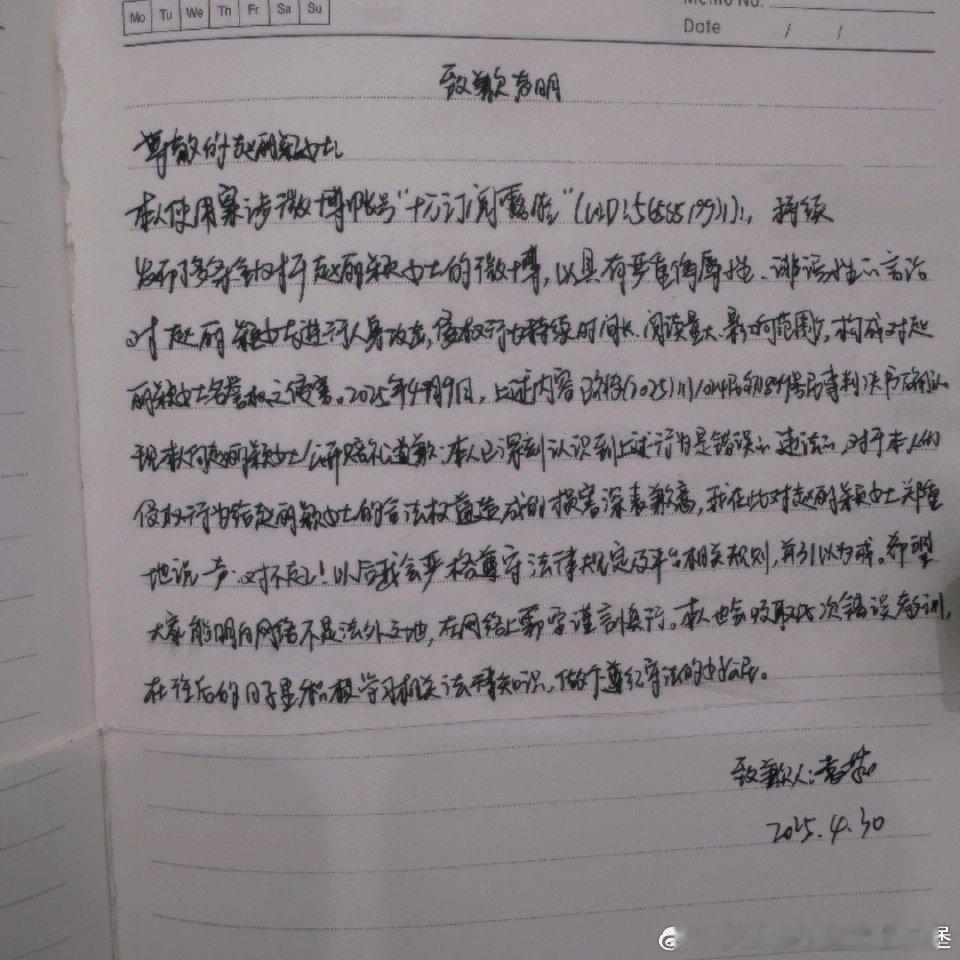 Mo Tu We Th Fr Sa Su
Memo No.
Date / /
致歉声明
尊敬的赵丽颖女士:
本人使用案涉微博账号"十方订阅露脸"(UID:5658519931), 持续
发布多条针对赵丽颖女士的微博,以具有严重侮辱性、诽谤性的言论
对赵丽颖女士进行人身攻击,侵权行为持续时间长、阅读量大、影响范围广,构成对赵
丽颖女士名誉权之侵害。2025年4月9日,上述内容已经(2025)川1024民初 号民事判决书确认。
现本人向赵丽颖女士公开赔礼道歉:本人已深刻认识到上述行为是错误的、违法的,对于本人的
侵权行为给赵丽颖女士的合法权益造成的损害深表歉意,我在此对赵丽颖女士郑重
地说一声:对不起!以后我会严格遵守法律规定及平台相关规则,并引以为戒。希望
大家能明白网络不是法外之地,在网络上需要谨言慎行。本人也会吸取此次错误教训,
在往后的日子里积极学习相关法律知识,做个遵纪守法的好公民。
致歉人:
2025.4.30